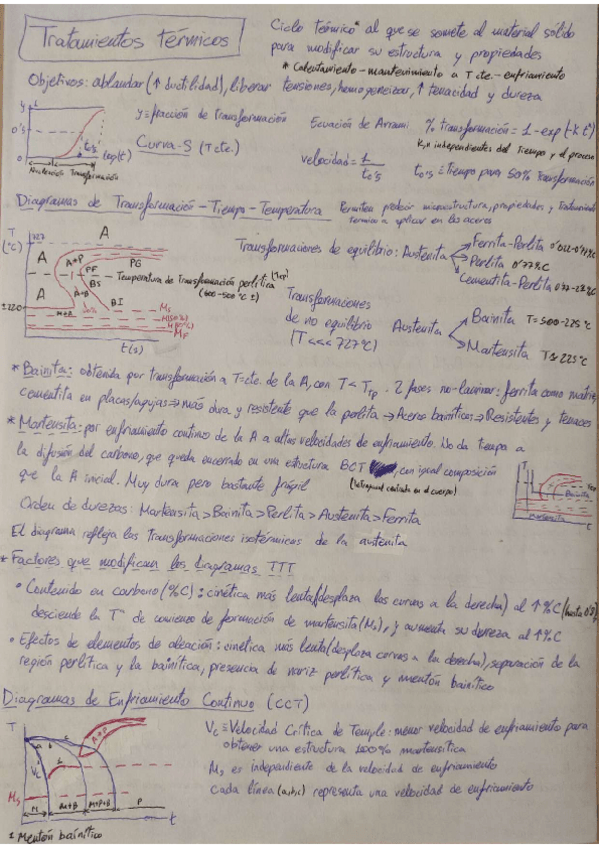 Tratamientos térmicos
Ciclo térmico* al que se somete al material sólido
para modificar su estructura y propiedades
* Calentamiento-mantenimiento a T cte.-enfriamiento
Objetivos: ablandar (↑ ductilidad), liberar tensiones, homogeneizar, ↑ tenacidad y dureza
y
1
0'5
0
t0'5
log(t)
Nucleación Transformación
y ≡ fracción de transformación
Curva-S (T cte.)
Ecuación de Avrami % transformación = 1-exp(-k tⁿ)
k,n independientes del tiempo y el proceso
velocidad = 1/t0'5
t0'5 ≡ tiempo para 50% transformación
Diagramas de Transformación-Tiempo-Temperatura
Permiten predecir microestructura, propiedades y tratamiento
térmico a aplicar en los aceros
T
(°C)
727
A
A+P
PG
PF
BS
A
A
A+B
BI
Temperatura de transformación perlítica (Tᴛᴘ)
(600-500 °C ±)
±220
M+A
50%
Ms
M(50%)
M(90%)
Mf
t(s)
Transformaciones de equilibrio: Austenita
Ferrita-Perlita 0'022-0'77%C
Perlita 0'77%C
Cementita-Perlita 0'77-2'11%C
Transformaciones
de no equilibrio
(T <<< 727°C)
Austenita
Bainita T=500-225 °C
Martensita T≤225°C
* Bainita: obtenida por transformación a T=cte. de la A, con T < Tᴛᴘ. 2 fases no-laminar: ferrita como matriz,
cementita en placas/agujas → más dura y resistente que la perlita → Aceros bainíticos → Resistentes y tenaces
* Martensita: por enfriamiento continuo de la A a altas velocidades de enfriamiento. No da tiempo a
la difusión del carbono, que queda encerrado en una estructura BCT con igual composición
que la A inicial. Muy dura pero bastante frágil
(tetragonal centrada en el cuerpo)
T
Bainita
Martensita
t
Orden de durezas: Martensita > Bainita > Perlita > Austenita > Ferrita
El diagrama refleja las transformaciones isotérmicas de la austenita
* Factores que modifican los diagramas TTT
• Contenido en carbono (%C): cinética más lenta (desplaza las curvas a la derecha) al ↑%C (hasta 0'8),
desciende la Tª de comienzo de formación de martensita (Ms), y aumenta su dureza al ↑%C
• Efectos de elementos de aleación: cinética más lenta (desplaza curvas a la derecha), separación de la
región perlítica y la bainítica, presencia de nariz perlítica y mentón bainítico
Diagramas de Enfriamiento Continuo (CCT)
T
a
b
c
A+P
Vc
1
Ms
M
M+B
M+P+B
P
t
1 Mentón bainítico
Vc ≡ Velocidad Crítica de Temple: menor velocidad de enfriamiento para
obtener una estructura 100% martensítica
Ms es independiente de la velocidad de enfriamiento
Cada línea (a,b,c) representa una velocidad de enfriamiento